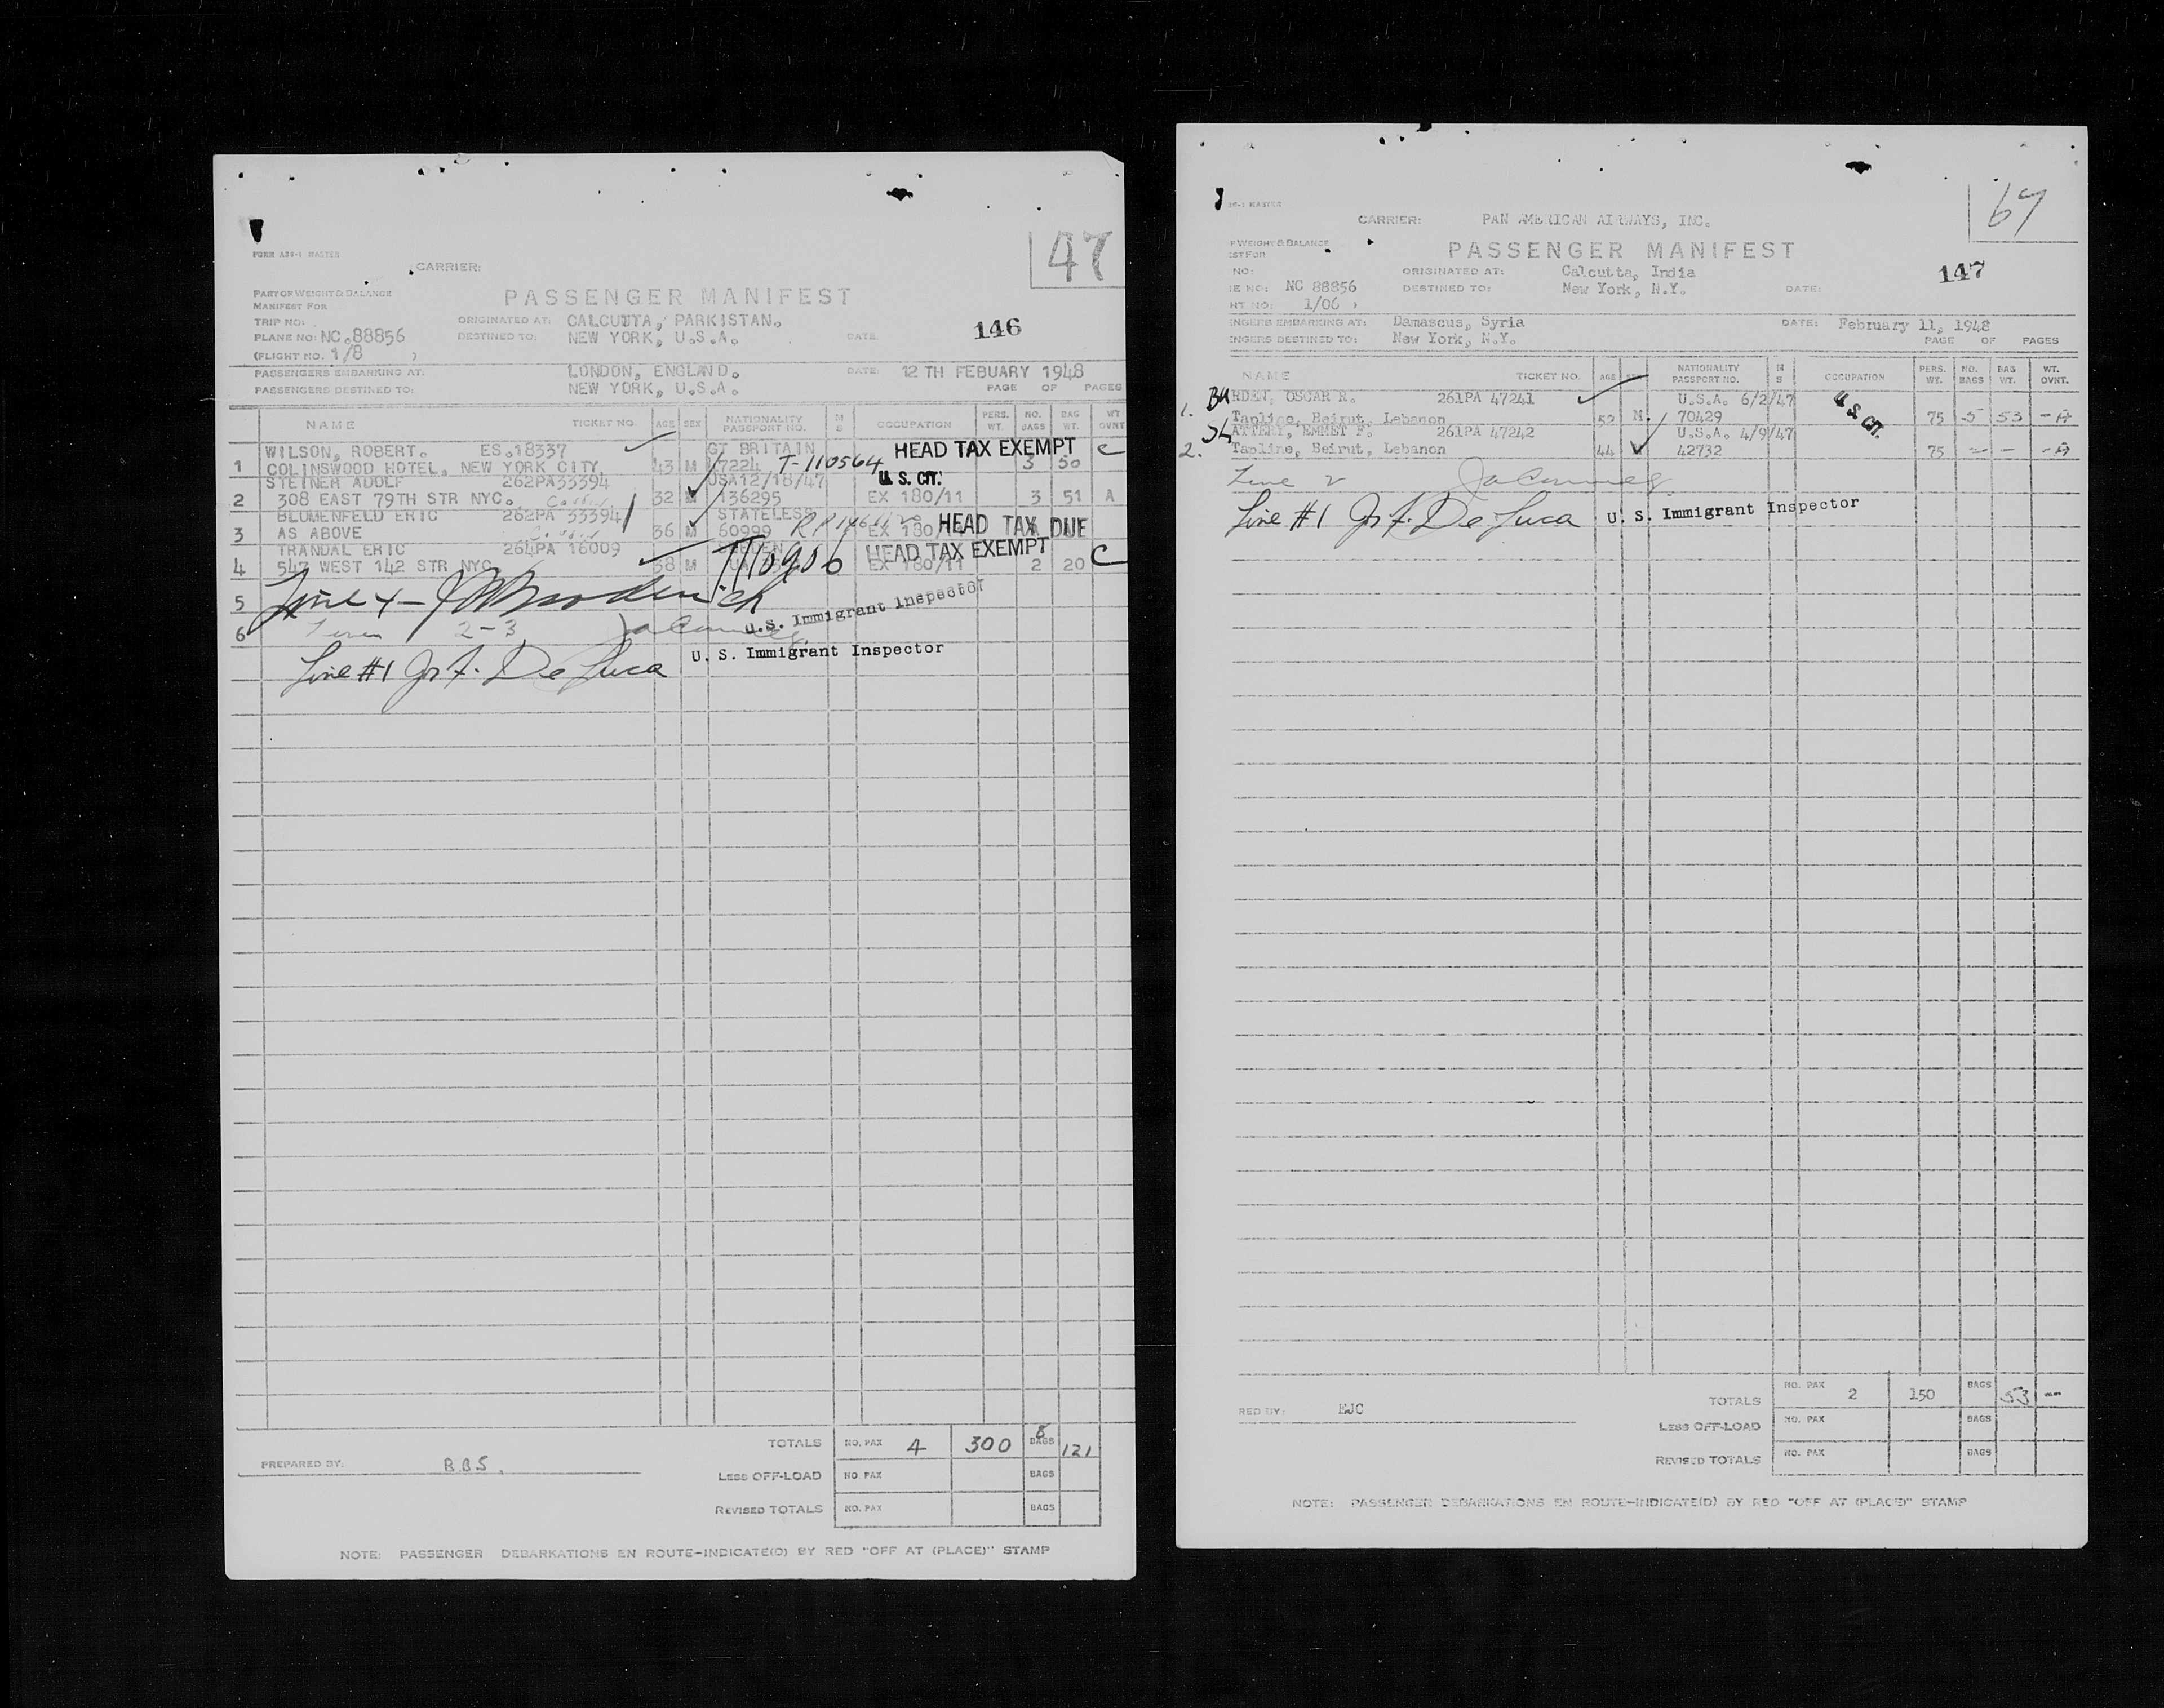 FORM A36-1 MASTER
47
CARRIER:
PART OF WEIGHT & BALANCE
MANIFEST FOR
PASSENGER MANIFEST
TRIP NO:
ORIGINATED AT: CALCUTTA, PARKISTAN.
146
PLANE NO: NC.88856
DESTINED TO: NEW YORK, U.S.A.
DATE
(FLIGHT NO. 1/8 )
PASSENGERS EMBARKING AT: LONDON, ENGLAND.
DATE: 12 TH FEBUARY 1948
PASSENGERS DESTINED TO: NEW YORK, U.S.A.
PAGE OF PAGES
NAME TICKET NO. AGE SEX NATIONALITY PASSPORT NO. M S OCCUPATION PERS. WT. NO. BAGS BAG WT. WT OVNT
WILSON, ROBERT. ES.18337 GT BRITAIN HEAD TAX EXEMPT C
1 COLINSWOOD HOTEL, NEW YORK CITY. 43 M 47224 T-110564 3 50
STEINER ADOLF 262PA33394 USA12/18/47 U.S. CIT.
2 308 EAST 79TH STR NYC. 32 M 136295 EX 180/11 3 51 A
BLUMENFELD ERIC 262PA 33394 STATELESS
3 AS ABOVE 36 M 60999 EX 180/11 HEAD TAX DUE
TRANDAL ERIC 264PA 16009 SWEDEN HEAD TAX EXEMPT
4 547 WEST 142 STR NYC 38 M EX 180/11 2 20 C
5 Line 4 –
U.S. Immigrant Inspector
6 2-3
Line #1 Jos F. De Luca U. S. Immigrant Inspector
TOTALS NO. PAX 4 300 8 BAGS 121
PREPARED BY: B.B.S.
LESS OFF-LOAD NO PAX BAGS
REVISED TOTALS NO. PAX BAGS
NOTE: PASSENGER DEBARKATIONS EN ROUTE-INDICATE(D) BY RED "OFF AT (PLACE)" STAMP
36-1 MASTER
67
CARRIER: PAN AMERICAN AIRWAYS, INC.
F WEIGHT & BALANCE
EST FOR
PASSENGER MANIFEST
NO:
ORIGINATED AT: Calcutta, India
147
IE NO: NC 88856
DESTINED TO: New York, N.Y.
DATE:
HT NO: 1/06 )
ENGERS EMBARKING AT: Damascus, Syria
DATE: February 11, 1948
ENGERS DESTINED TO: New York, N.Y.
PAGE OF PAGES
NAME TICKET NO. AGE SEX NATIONALITY PASSPORT NO. M S OCCUPATION PERS. WT. NO. BAGS BAG WT. WT. OVNT.
BURDEN, OSCAR R. 261PA 47241 U.S.A. 6/2/47 U.S. CIT.
1. Tapline, Beirut, Lebanon 52 M. 70429 75 5 53 - A
SLATTERY, EMMET F. 261PA 47242 U.S.A. 4/9/47
2. Tapline, Beirut, Lebanon 44 42732 75 - - - A
Line 2
Line #1 Jos F. De Luca U. S. Immigrant Inspector
TOTALS NO. PAX 2 150 BAGS 53 --
RED BY: EJC
LESS OFF-LOAD NO. PAX BAGS
REVISED TOTALS NO. PAX BAGS
NOTE: PASSENGER DEBARKATIONS EN ROUTE-INDICATE(D) BY RED "OFF AT (PLACE)" STAMP